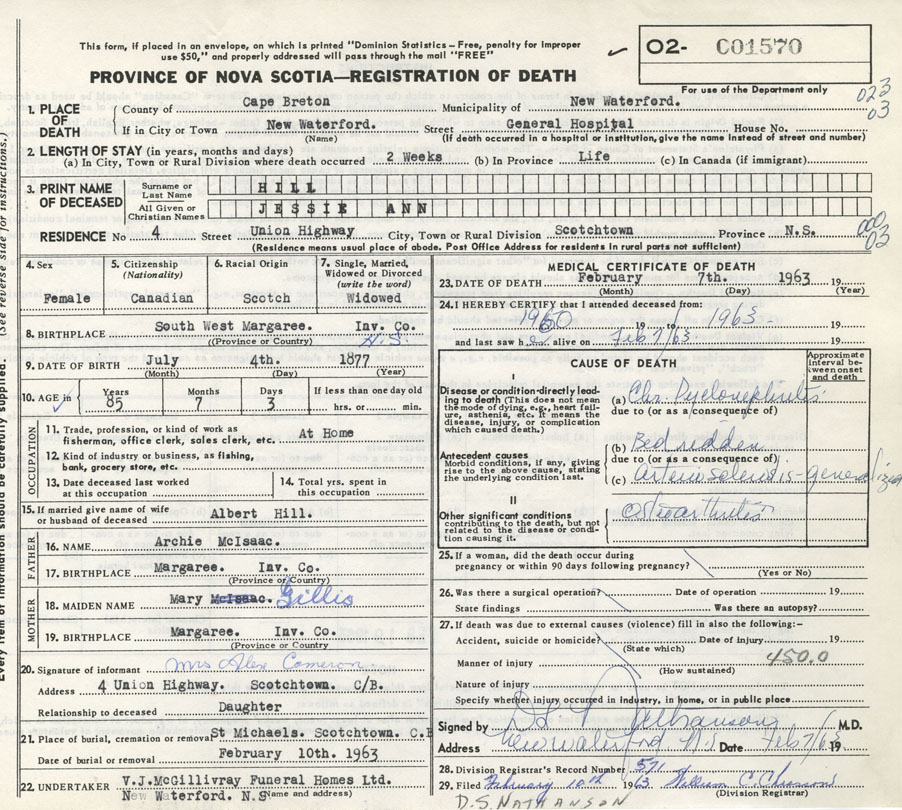 This form, if placed in an envelope, on which is printed "Dominion Statistics – Free, penalty for improper
use $50," and properly addressed will pass through the mail "FREE"
02- C01570
For use of the Department only
PROVINCE OF NOVA SCOTIA—REGISTRATION OF DEATH
023
03
1. PLACE OF DEATH County of Cape Breton Municipality of New Waterford.
If in City or Town New Waterford. Street General Hospital House No.
(Name) (If death occurred in a hospital or institution, give the name instead of street and number)
2. LENGTH OF STAY (in years, months and days)
(a) In City, Town or Rural Division where death occurred 2 Weeks (b) In Province Life (c) In Canada (if immigrant)
3. PRINT NAME OF DECEASED Surname or Last Name HILL
All Given or Christian Names JESSIE ANN
000
03
RESIDENCE No 4 Street Union Highway City, Town or Rural Division Scotchtown Province N.S.
(Residence means usual place of abode. Post Office Address for residents in rural parts not sufficient)
4. Sex Female
5. Citizenship (Nationality) Canadian
6. Racial Origin Scotch
7. Single, Married, Widowed or Divorced (write the word) Widowed
8. BIRTHPLACE South West Margaree. Inv. Co.
(Province or Country) N.S.
9. DATE OF BIRTH July 4th. 1877
(Month) (Day) (Year)
10. AGE in Years 85 Months 7 Days 3 If less than one day old hrs. or min.
OCCUPATION
11. Trade, profession, or kind of work as fisherman, office clerk, sales clerk, etc. At Home
12. Kind of industry or business, as fishing, bank, grocery store, etc.
13. Date deceased last worked at this occupation
14. Total yrs. spent in this occupation
15. If married give name of wife or husband of deceased Albert Hill.
FATHER
16. NAME Archie McIsaac.
17. BIRTHPLACE Margaree. Inv. Co.
(Province or Country)
MOTHER
18. MAIDEN NAME Mary McIsaac. Gillis
19. BIRTHPLACE Margaree. Inv. Co.
(Province or Country)
20. Signature of informant Mrs Alex Cameron
Address 4 Union Highway. Scotchtown. C/B.
Relationship to deceased Daughter
21. Place of burial, cremation or removal St Michaels. Scotchtown. C.B
Date of burial or removal February 10th. 1963
22. UNDERTAKER V.J.McGillivray Funeral Homes Ltd.
New Waterford. N.S (Name and address)
MEDICAL CERTIFICATE OF DEATH
23. DATE OF DEATH February 7th. 1963 19
(Month) (Day) (Year)
24. I HEREBY CERTIFY that I attended deceased from:
1960 19 to 1963 19
and last saw her alive on Feb 7/63 19
CAUSE OF DEATH
Approximate interval between onset and death
I
Disease or condition directly leading to death (This does not mean the mode of dying, e.g., heart failure, asthenia, etc. It means the disease, injury, or complication which caused death.)
(a) Chr. Pyelonephritis
due to (or as a consequence of)
Antecedent causes
Morbid conditions, if any, giving rise to the above cause, stating the underlying condition last.
(b) Bed ridden
due to (or as a consequence of)
(c) arteriosclerosis-generalized
II
Other significant conditions contributing to the death, but not related to the disease or condition causing it.
osteoarthritis
25. If a woman, did the death occur during pregnancy or within 90 days following pregnancy?
(Yes or No)
26. Was there a surgical operation? Date of operation 19
State findings Was there an autopsy?
27. If death was due to external causes (violence) fill in also the following:-
Accident, suicide or homicide? Date of injury 19
(State which) 450.0
Manner of injury
(How sustained)
Nature of injury
Specify whether injury occurred in industry, in home, or in public place
Signed by Nathanson M.D.
Address New Waterford N.S Date Feb 7/63 19
28. Division Registrar's Record Number 571
29. Filed February 10th 1963
(Division Registrar)
D.S. NATHANSON
(See reverse side for instructions.)
Every item of information should be carefully supplied.